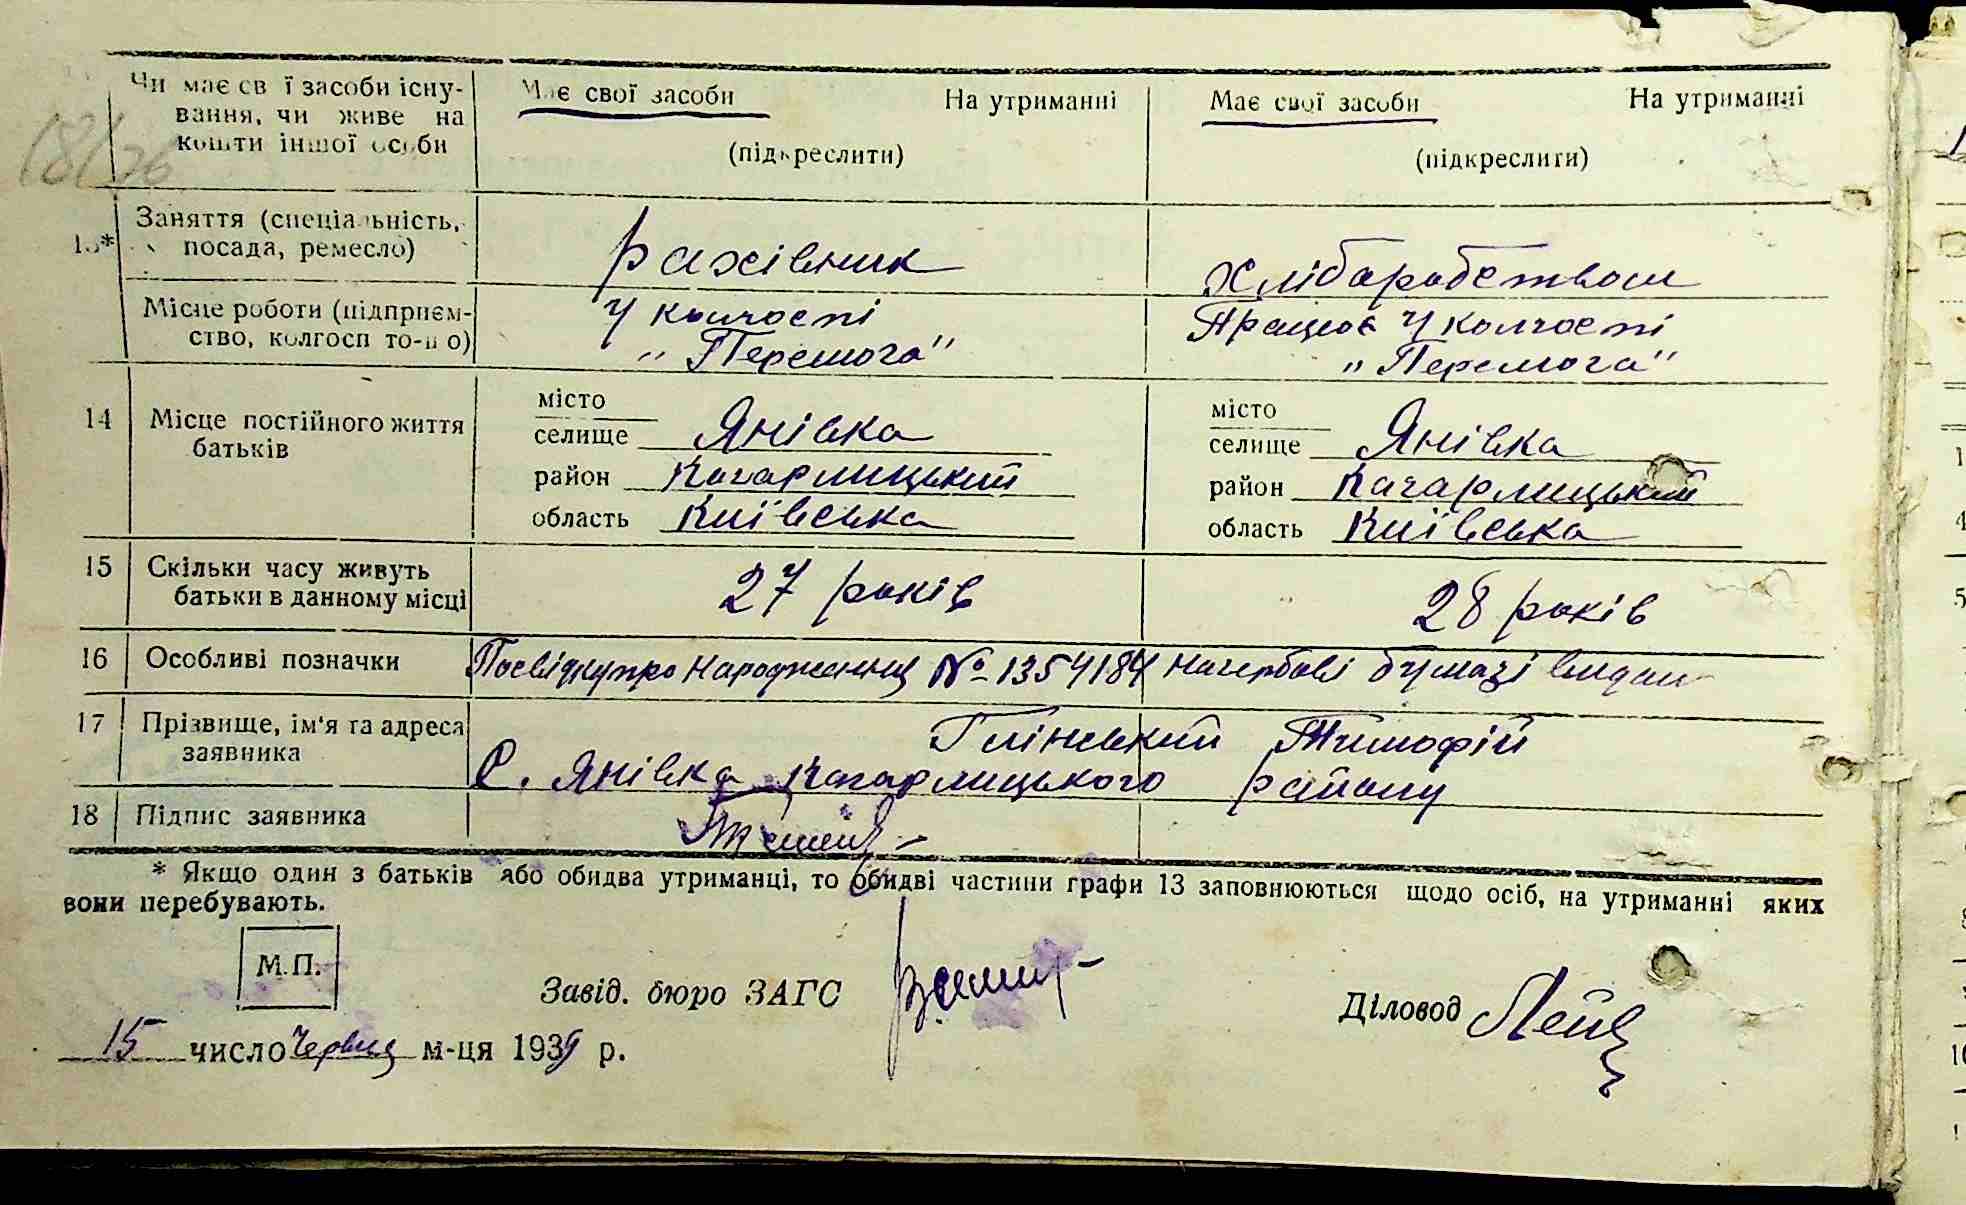 Чи має свої засоби існу- Має свої засоби На утриманні Має свої засоби На утриманні
вання, чи живе на
кошти іншої особи (підкреслити) (підкреслити)
18/76
13* Заняття (спеціальність, посада, ремесло) рахівник хліборобством
Місце роботи (підприєм- У колгоспі Працює у колгоспі
ство, колгосп то-що) „Перемога" „Перемога"
14 Місце постійного життя місто місто
батьків селище Янівка селище Янівка
район Кагарлицький район Кагарлицький
область Київська область Київська
15 Скільки часу живуть 27 років 28 років
батьки в данному місці
16 Особливі позначки Посвідку про народження № 1354184 на гербові бумазі видали
17 Прізвище, ім'я та адреса Глінський Тимофій
заявника С. Янівка Кагарлицького району
18 Підпис заявника
* Якщо один з батьків або обидва утриманці, то обидві частини графи 13 заповнюються щодо осіб, на утриманні яких
вони перебувають.
М.П.
Завід. бюро ЗАГС
Діловод
15 число Червня м-ця 1939 р.